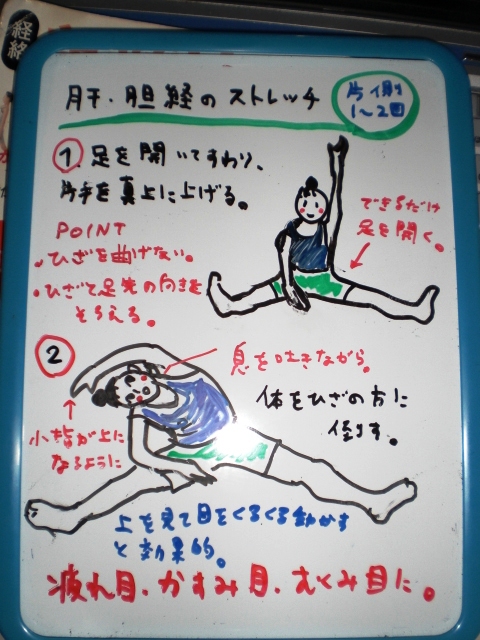 経絡
肝・胆経のストレッチ
片側
1〜2回
1. 足を開いてすわり、
片手を真上に上げる。
POINT
・ひざを曲げない。
・ひざと足先の向きを
そろえる。
できるだけ
足を開く。
2
息を吐きながら。
体をひざの方に
倒す。
小指が上に
なるように
上を見て目をくるくる動かす
と効果的。
疲れ目、かすみ目、むくみ目に。